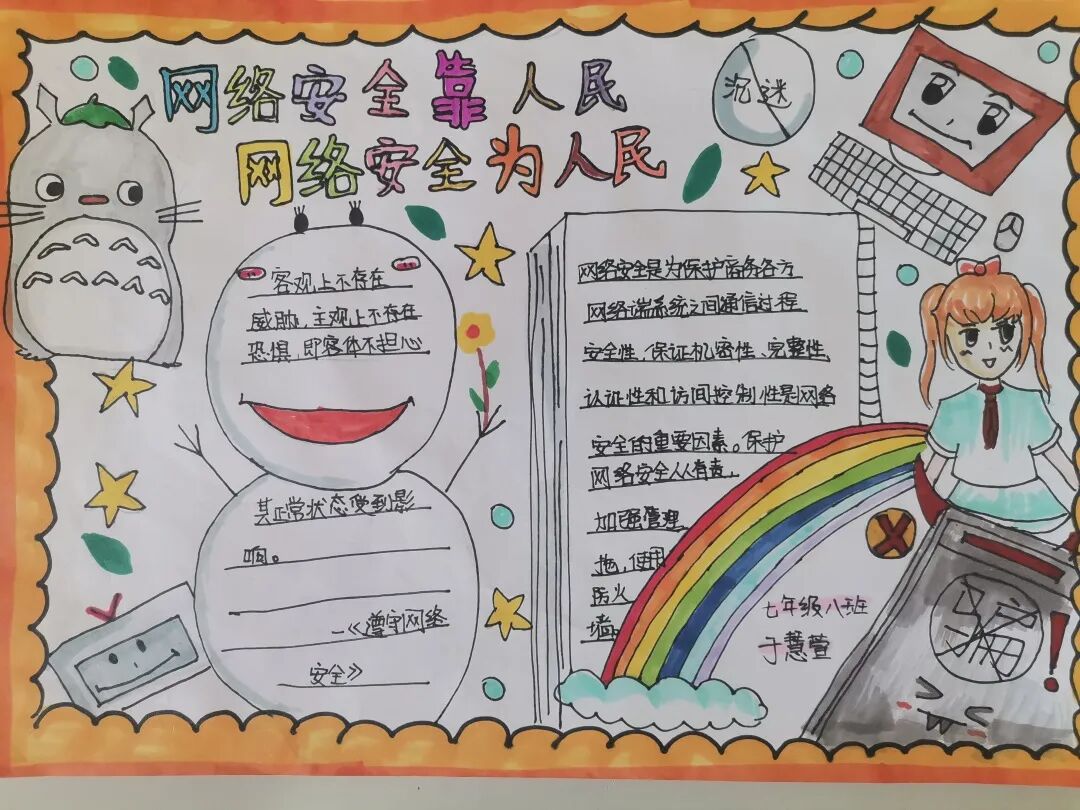 网络安全靠人民
网络安全为人民
沉迷
客观上不存在
威胁，主观上不存在
恐惧，即客体不担心
其正常状态受到影
响。
—《遵守网络
安全》
网络安全是为保护商务各方
网络端系统之间通信过程
安全性，保证机密性、完整性，
认证性和访问控制性是网络
安全的重要因素。保护
网络安全从有责，
加强管理
拖，使用
防火
墙。
七年级八班
于慧萱